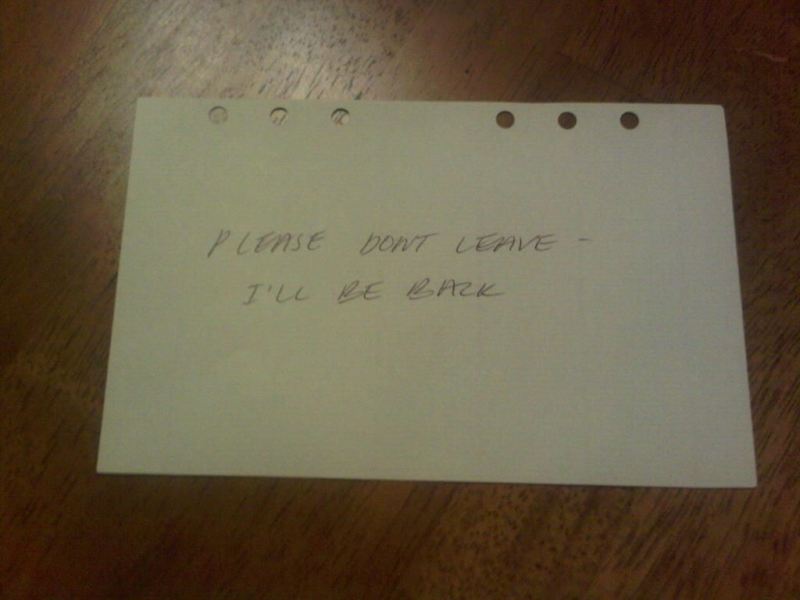 PLEASE DONT LEAVE -
I'LL BE BACK